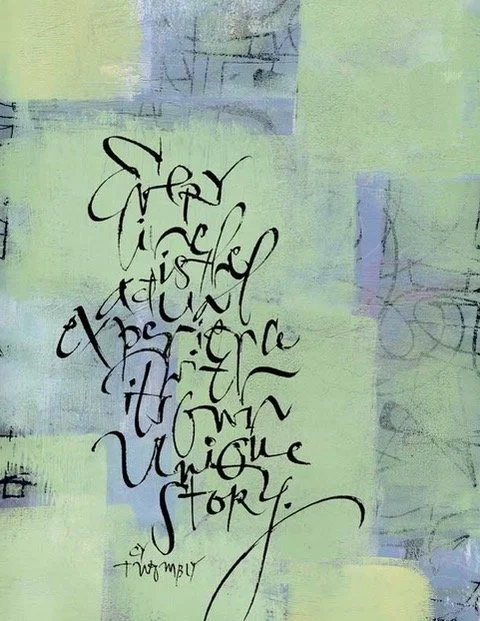 Every
line
is the
actual
experience
with
its own
unique
story.
cy
twombly